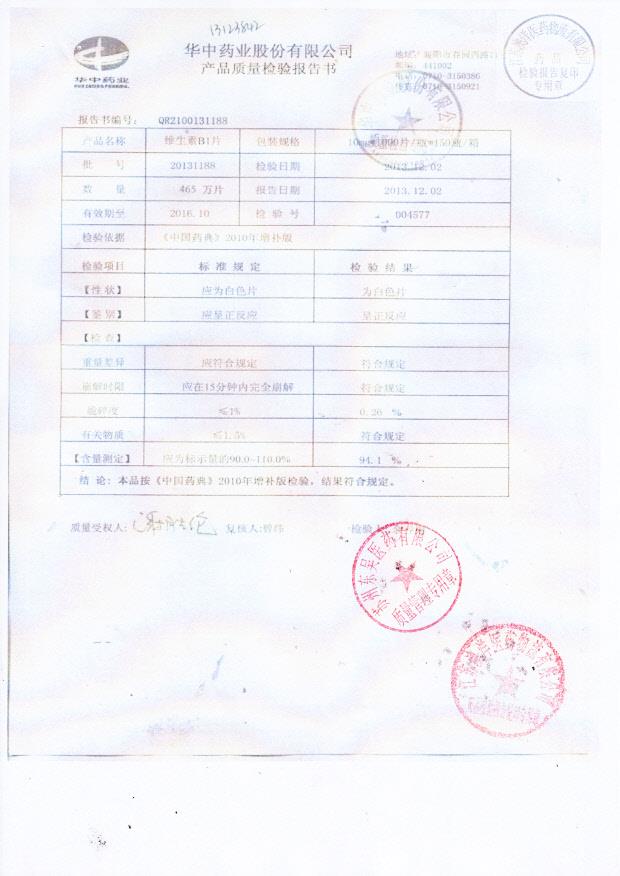 13123842
华中药业股份有限公司
产品质量检验报告书
华中药业
地址：襄阳市春园西路
邮编：441002
电话：0710-3150386
传真：0710-3150921
药品
检验报告复印
专用章
报告书编号： QR2100131188
产品名称 维生素B1片 包装规格 10mg*1000片/瓶*150瓶/箱
批 号 20131188 检验日期 2013.12.02
数 量 465 万片 报告日期 2013.12.02
有效期至 2016.10 检 验 号 004577
检验依据 《中国药典》2010年增补版
检验项目 标 准 规 定 检 验 结 果
【性状】 应为白色片 为白色片
【鉴别】 应呈正反应 呈正反应
【检查】
重量差异 应符合规定 符合规定
崩解时限 应在15分钟内完全崩解 符合规定
脆碎度 ≤1% 0.26 %
有关物质 ≤1.5% 符合规定
【含量测定】 应为标示量的90.0~110.0% 94.1 %
结 论：本品按《中国药典》2010年增补版检验，结果符合规定。
质量受权人: 复核人:曾纬 检验
苏州东吴医药有限公司
质量管理专用章